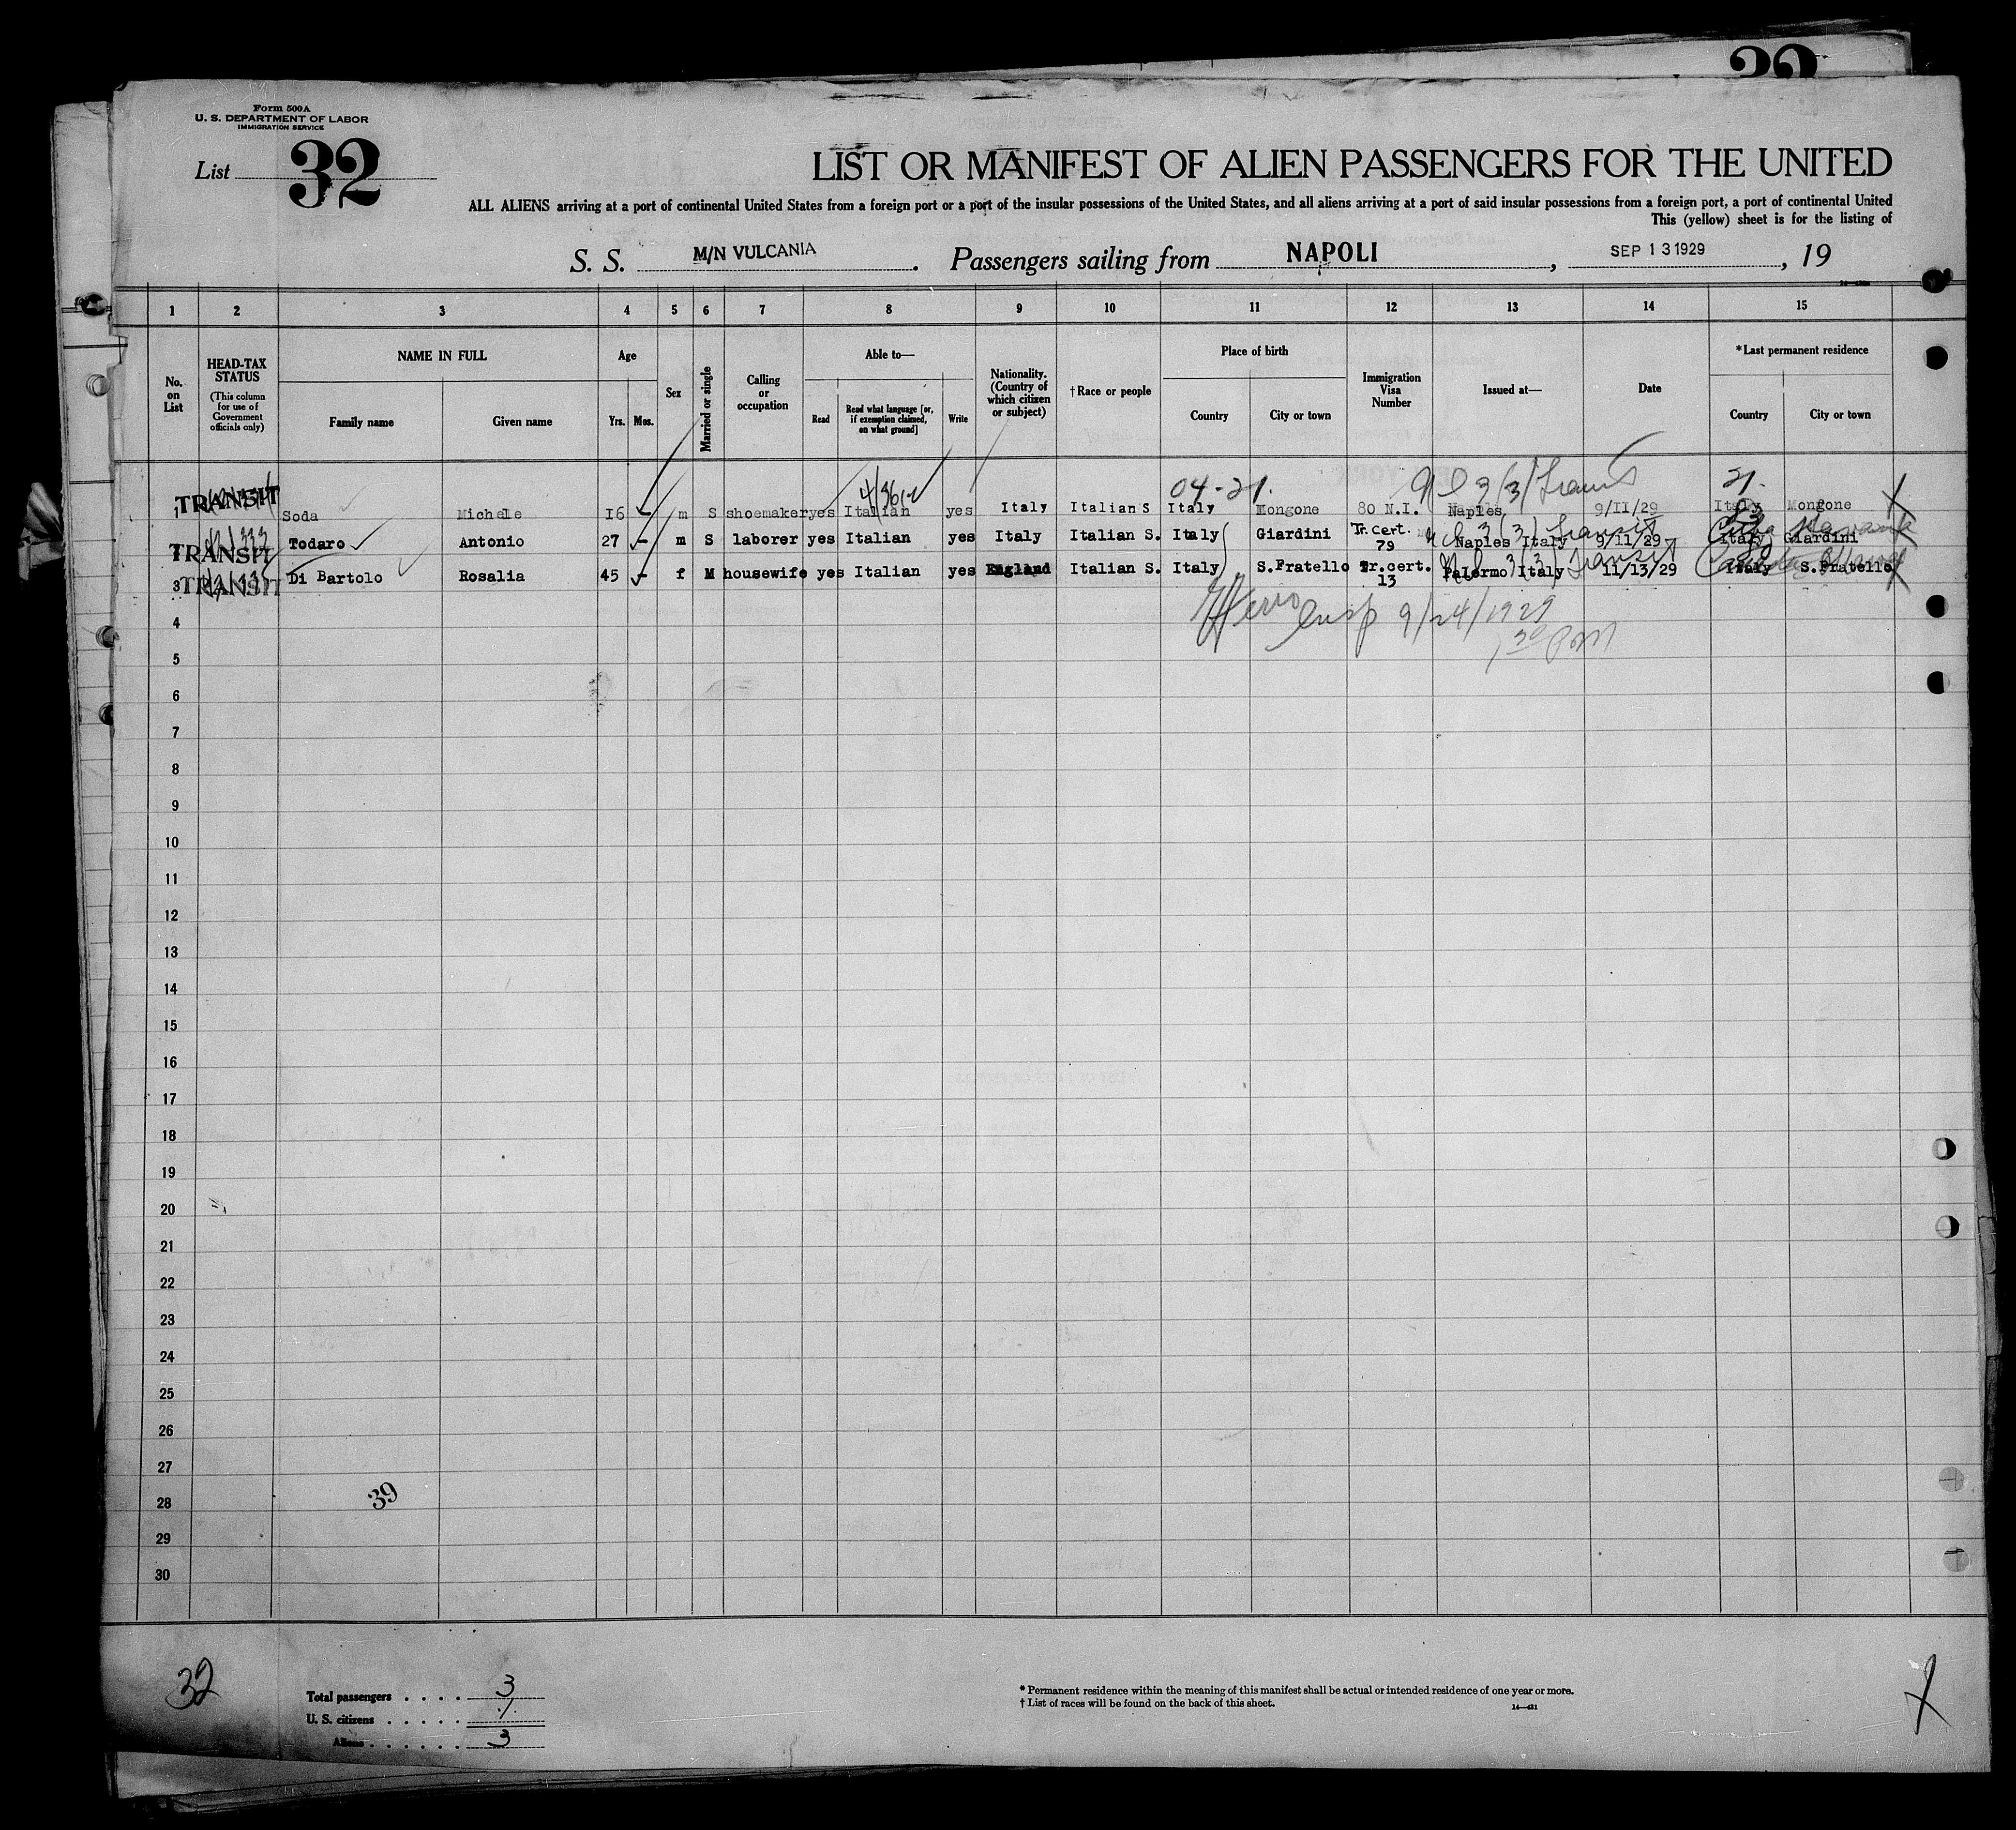 32
Form 500A
U. S. DEPARTMENT OF LABOR
IMMIGRATION SERVICE
List 32
LIST OR MANIFEST OF ALIEN PASSENGERS FOR THE UNITED
ALL ALIENS arriving at a port of continental United States from a foreign port or a port of the insular possessions of the United States, and all aliens arriving at a port of said insular possessions from a foreign port, a port of continental United
This (yellow) sheet is for the listing of
S. S. M/N VULCANIA. Passengers sailing from NAPOLI, SEP 13 1929, 19
1 2 3 4 5 6 7 8 9 10 11 12 13 14 15
No. on List
HEAD-TAX STATUS (This column for use of Government officials only)
NAME IN FULL
Family name Given name
Age
Yrs. Mos.
Sex
Married or single
Calling or occupation
Able to—
Read
Read what language [or, if exemption claimed, on what ground]
Write
Nationality. (Country of which citizen or subject)
†Race or people
Place of birth
Country City or town
Immigration Visa Number
Issued at—
Date
*Last permanent residence
Country City or town
04-21. 21.
1 TRANSIT Soda Michele 16 - m S shoemaker yes Italian yes Italy Italian S Italy Mongone 80 N.I. Naples 9/11/29 Italy Mongone
TRANSIT Todaro Antonio 27 - m S laborer yes Italian yes Italy Italian S. Italy Giardini Tr.cert. 79 Naples Italy 9/11/29 Italy Giardini
Cuba Havana
3 TRANSIT Di Bartolo Rosalia 45 - f M housewife yes Italian yes England Italian S. Italy S.Fratello Tr.cert. 13 Palermo Italy 11/13/29 Italy S.Fratello
Insp 9/24/1929
4
5
6
7
8
9
10
11
12
13
14
15
16
17
18
19
20
21
22
23
24
25
26
27
28
29
30
39
32
Total passengers . . . . 3
U. S. citizens . . . . .
Aliens . . . . . . 3
* Permanent residence within the meaning of this manifest shall be actual or intended residence of one year or more.
† List of races will be found on the back of this sheet.
14—431